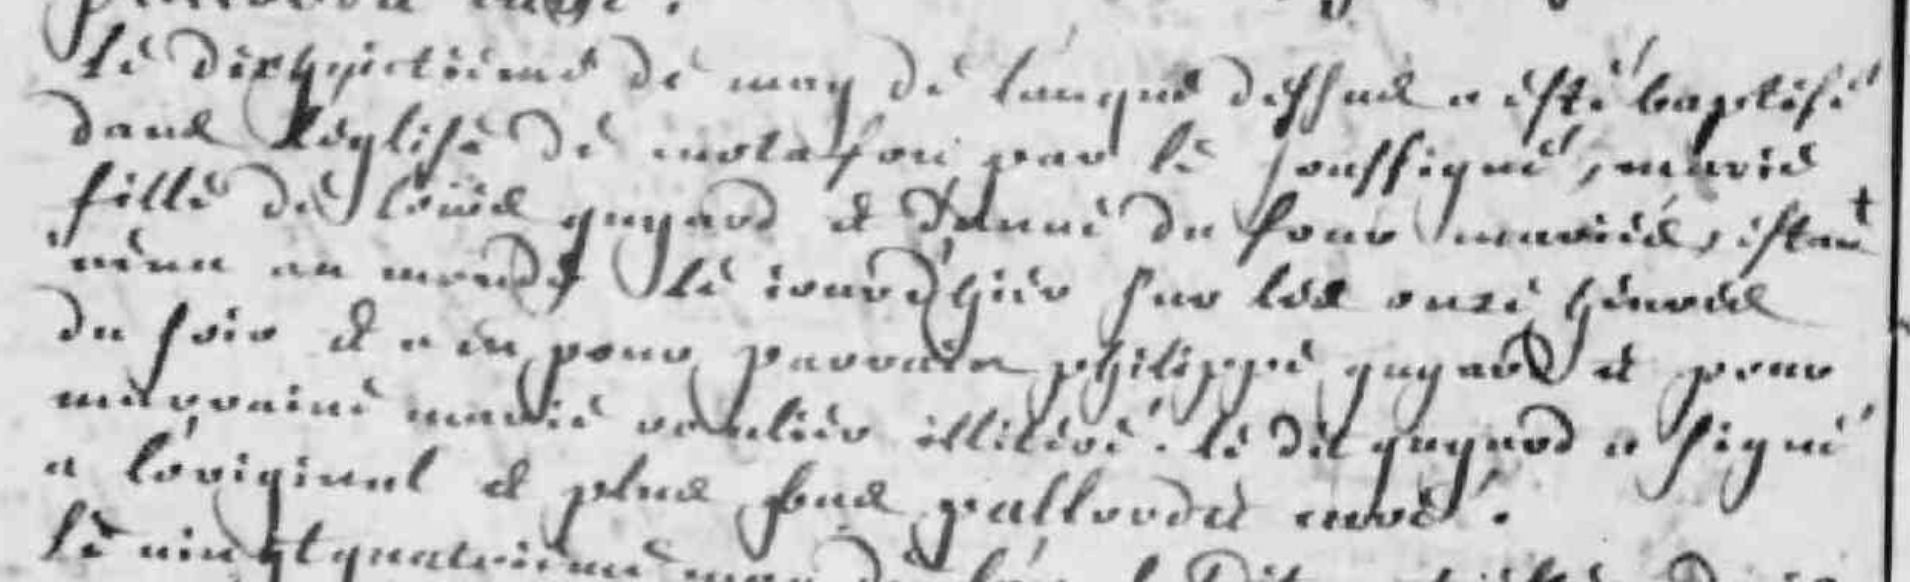 Le dixhuictieme de may de lan que dessus a esté baptisé
dans léglise de par le soussigné, marie
fille de louis guyard et d'anne du four mariés, estant
venue au monde le iourd'hier sur les onze heures
du soir et a eu pour parrain philippe guyard et pour
marraine marie illiteré. le dit guyard a signé
a l'original et plus bas curé.
Le vingt quatrieme may de